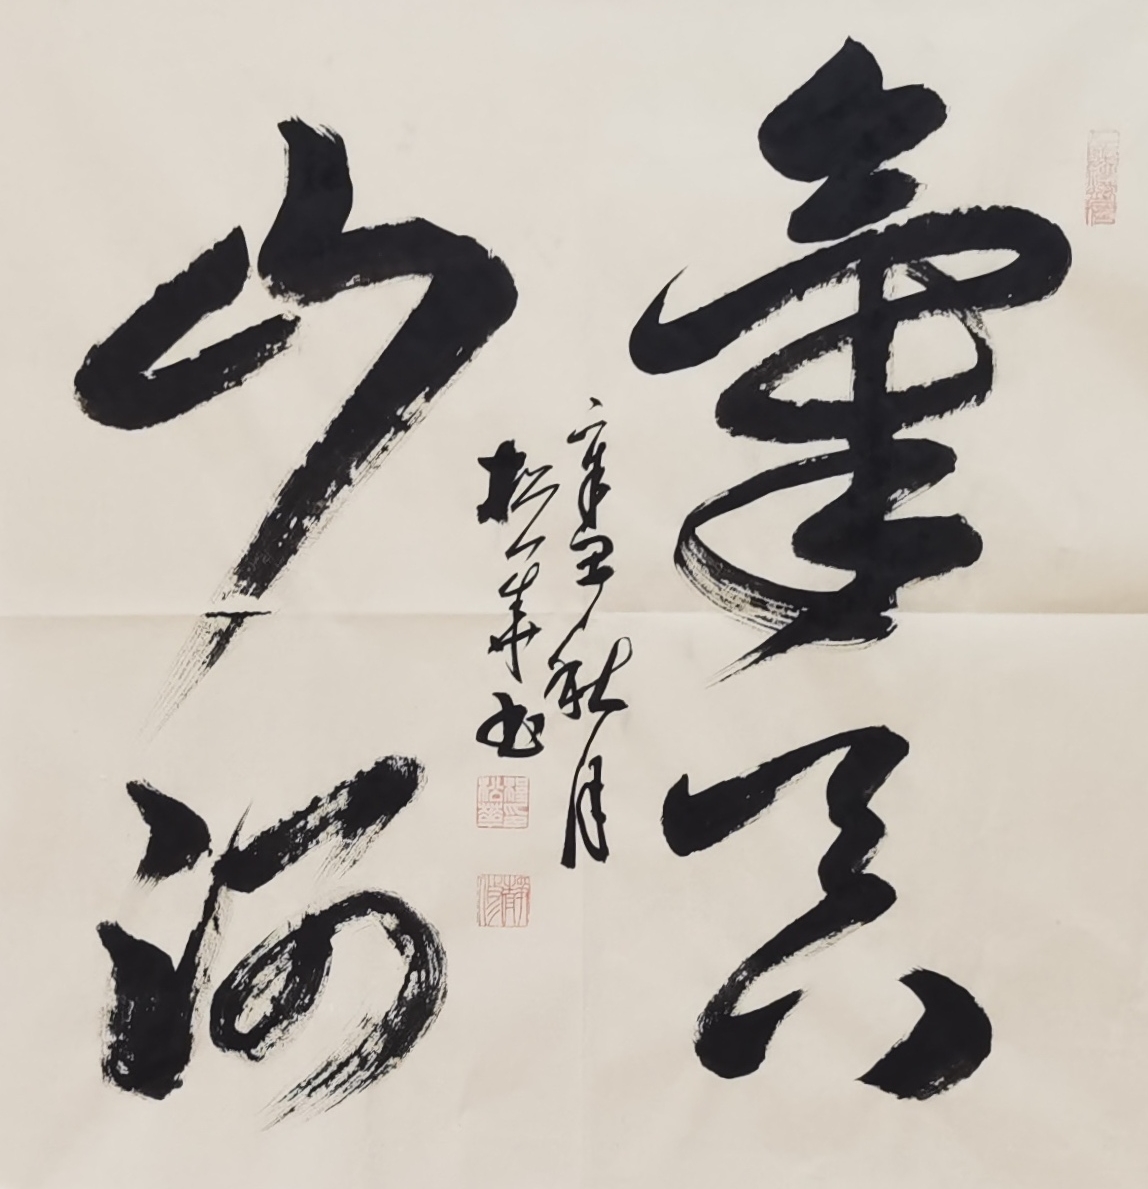 氣吞
山河
辛丑秋月
松华书